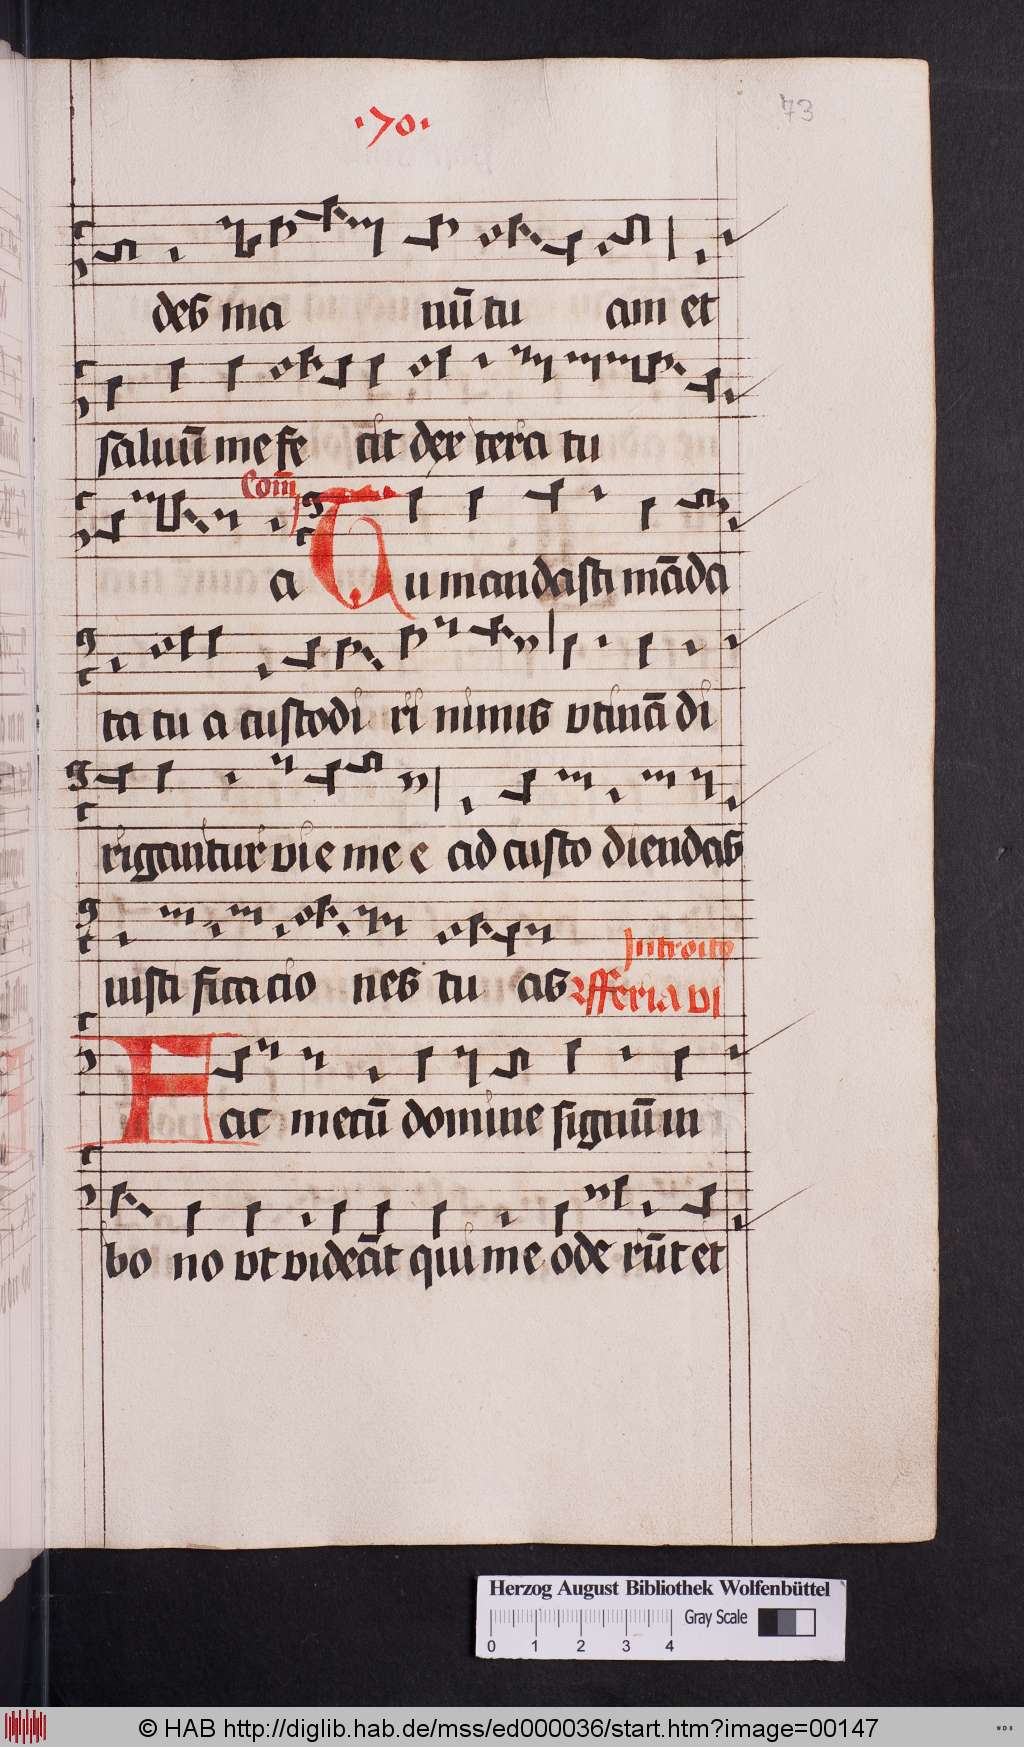 ·70·
73
des ma nūtu am et
saluū me fe cit dex tera tu
Com̄
a Tu mandasti māda
ta tu a custodi ri nimis vtinā di
rigantur vie me e ad custo diendas
iusti ficacio nes tu as
Introito
fferia vi
Fac mecū domine signū in
bo no vt videāt qui me ode rūt et
Herzog August Bibliothek Wolfenbüttel
0 1 2 3 4
Gray Scale
© HAB http://diglib.hab.de/mss/ed000036/start.htm?image=00147